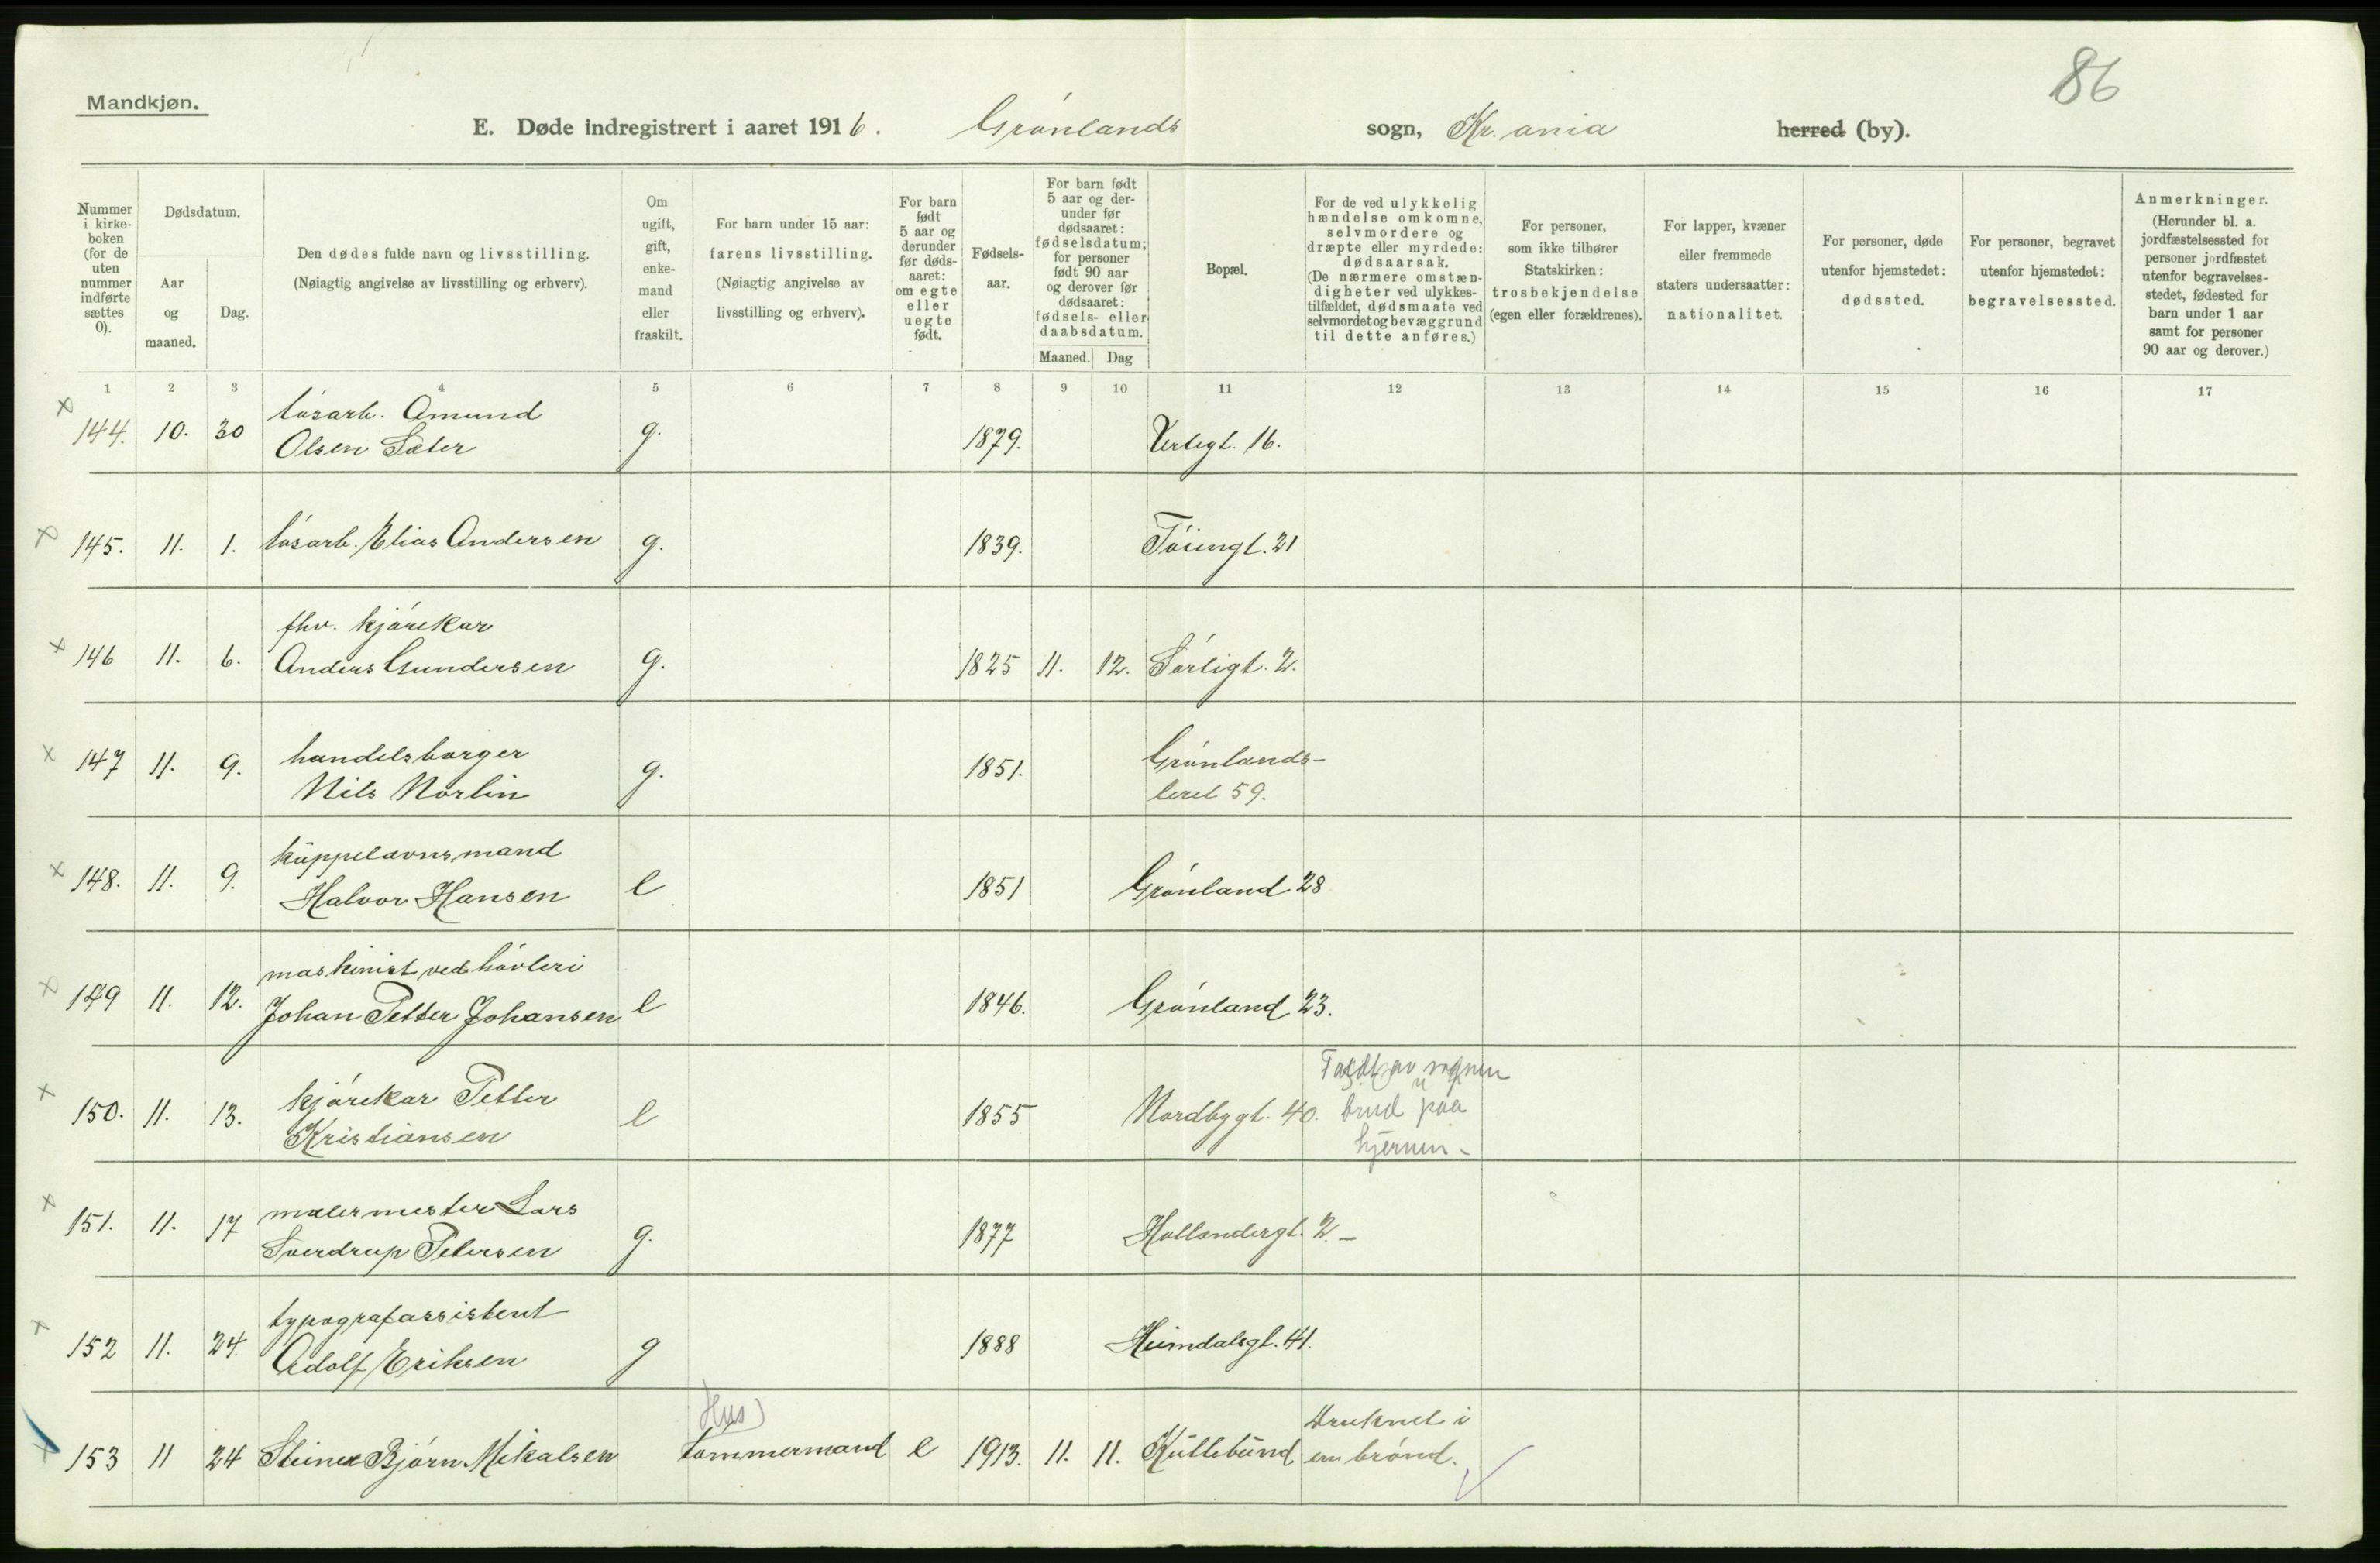 86
Mandkjøn.
E. Døde indregistrert i aaret 1916. Grønlands sogn, Kr.ania herred (by).
Nummer i kirke-boken (for de uten nummer indførte sættes 0).
Dødsdatum.
Aar og maaned.
Dag.
Den dødes fulde navn og livsstilling.
(Nøiagtig angivelse av livsstilling og erhverv).
Om ugift, gift, enke-mand eller fraskilt.
For barn under 15 aar:
farens livsstilling.
(Nøiagtig angivelse av livsstilling og erhverv).
For barn født 5 aar og derunder før døds-aaret: om egte eller uegte født.
Fødsels-aar.
For barn født 5 aar og der-under før dødsaaret: fødselsdatum; for personer født 90 aar og derover før dødsaaret: fødsels- eller daabsdatum.
Maaned. Dag
Bopæl.
For de ved ulykkelig hændelse omkomne, selvmordere og dræpte eller myrdede: dødsaarsak. (De nærmere omstæn-digheter ved ulykkes-tilfældet, dødsmaate ved selvmordet og bevæggrund til dette anføres.)
For personer, som ikke tilhører Statskirken: trosbekjendelse (egen eller forældrenes).
For lapper, kvæner eller fremmede staters undersaatter: nationalitet.
For personer, døde utenfor hjemstedet: dødssted.
For personer, begravet utenfor hjemstedet: begravelsessted.
Anmerkninger. (Herunder bl. a. jordfæstelsessted for personer jordfæstet utenfor begravelses-stedet, fødested for barn under 1 aar samt for personer 90 aar og derover.)
1 2 3 4 5 6 7 8 9 10 11 12 13 14 15 16 17
løsarb. Amund
144. 10. 30 Olsen Sæter g. 1879. Vertsgt. 16.
145. 11. 1. løsarb. Elias Andersen g. 1839. Tøiengt. 21
fhv. kjørekar
146 11. 6. Anders Gundersen g. 1825 11. 12. Sørligt. 2.
handelsborger Grønlands-
147 11. 9. Nils Norlin g. 1851. leret 59.
kuppelovnsmand
148. 11. 9. Halvor Hansen e 1851 Grønland 28
maskinist ved høvleri
149 11. 12. Johan Petter Johansen e 1846. Grønland 23.
kjørekar Petter
150. 11. 13. Kristiansen e 1855 Nordbygt. 40. brud paa
hjernen -
malermester Lars
151. 11. 17 Sverdrup Petersen g. 1877 Hollendergt. 2. -
typografassistent
152 11. 24. Adolf Eriksen g 1888 Heimdalsgt. 41.
Hus Druknet i
153 11 24 Steinar Bjørn Mikalsen tømmermand e 1913. 11. 11. Kullebund en brønd.